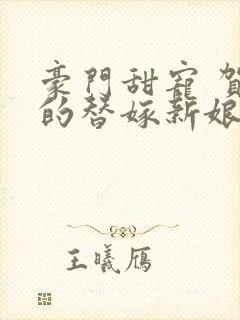 豪門甜寵 賀
的替嫁新娘
王曦雁